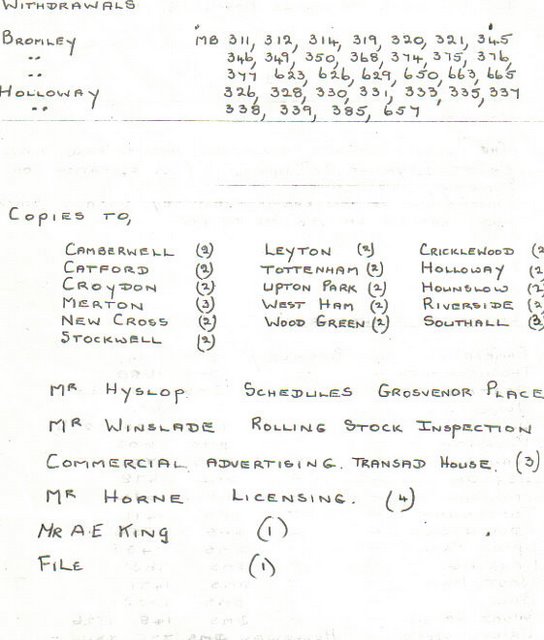 WITHDRAWALS
BROMLEY MB 311, 312, 314, 319, 320, 321, 345
" 346, 349, 350, 368, 374, 375, 376,
" 377 623, 626, 629, 650, 663, 665
HOLLOWAY 326, 328, 330, 331, 333, 335, 337
" 338, 339, 385, 657
COPIES TO,
CAMBERWELL (2) LEYTON (2) CRICKLEWOOD (2
CATFORD (2) TOTTENHAM (2) HOLLOWAY (2
CROYDON (2) UPTON PARK (2) HOUNSLOW (2
MERTON (3) WEST HAM (2) RIVERSIDE (2
NEW CROSS (2) WOOD GREEN (2) SOUTHALL (3
STOCKWELL (2)
MR HYSLOP. SCHEDULES GROSVENOR PLACE
MR WINSLADE ROLLING STOCK INSPECTION
COMMERCIAL ADVERTISING. TRANSAD HOUSE. (3)
MR HORNE LICENSING. (4)
MR A.E KING (1)
FILE (1)